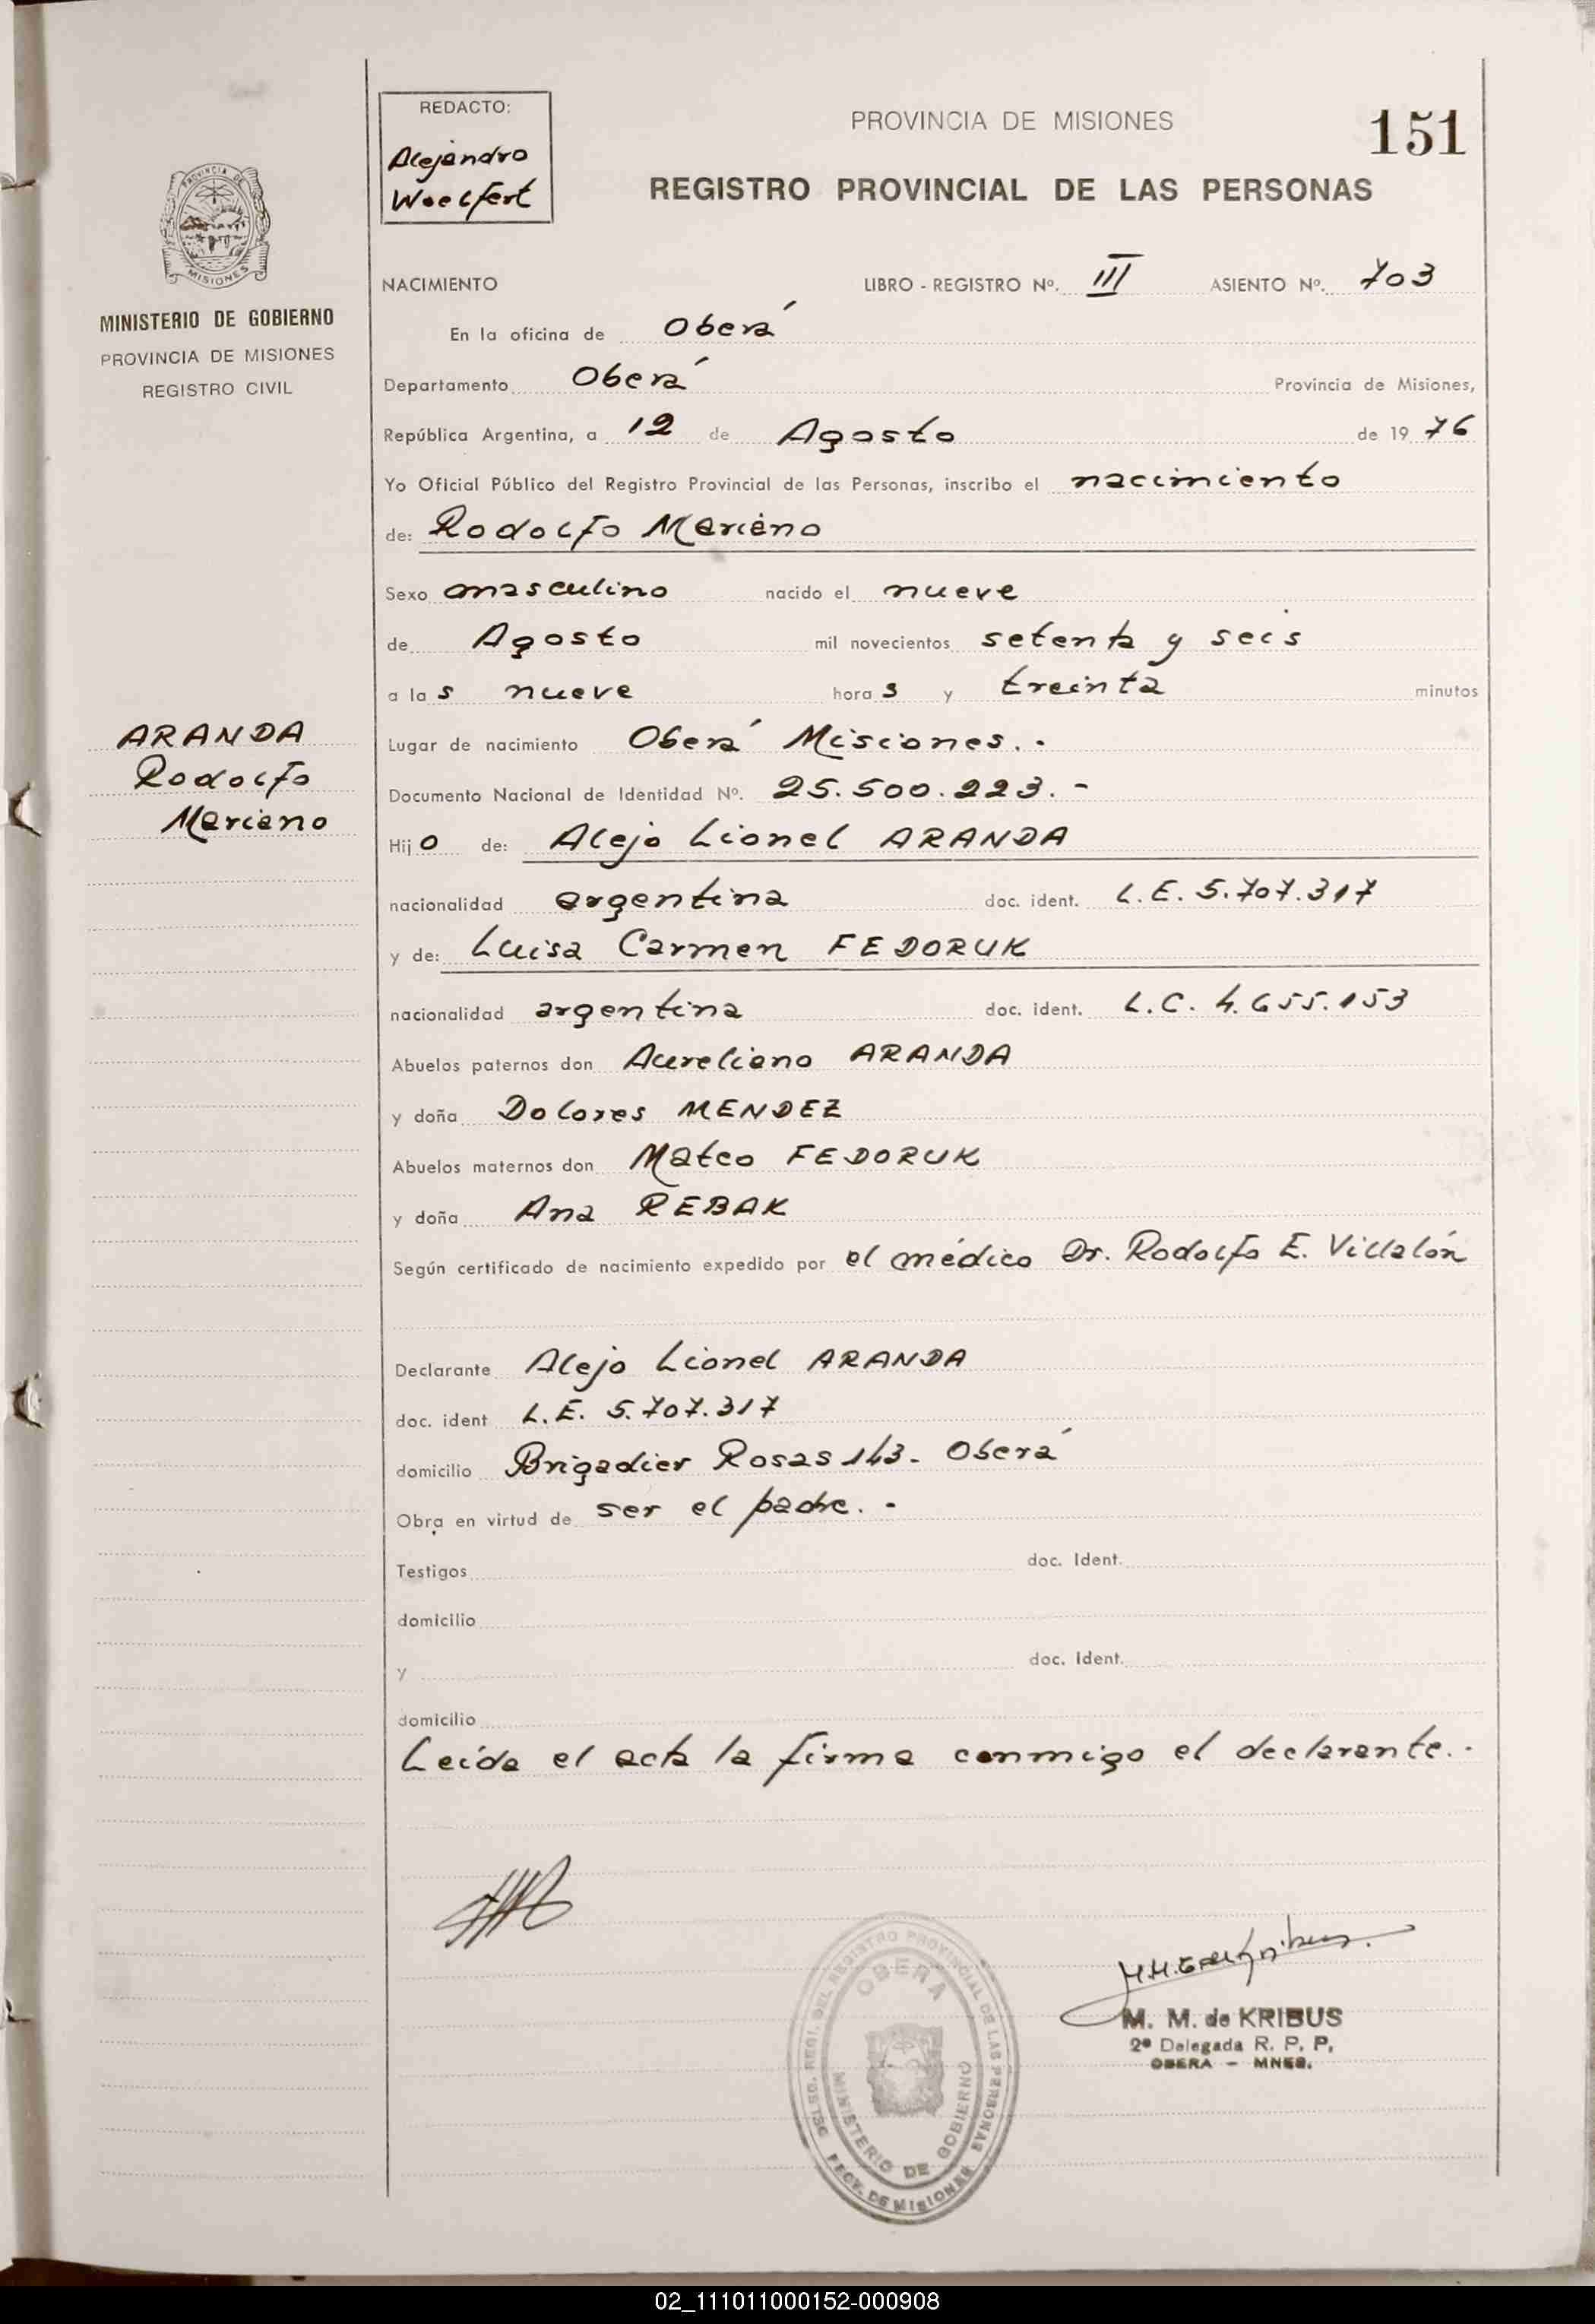 REDACTO:
Alejandro
Woelfert
PROVINCIA DE MISIONES
151
REGISTRO PROVINCIAL DE LAS PERSONAS
PROVINCIA DE
MISIONES
MINISTERIO DE GOBIERNO
PROVINCIA DE MISIONES
REGISTRO CIVIL
NACIMIENTO LIBRO - REGISTRO Nº. III ASIENTO Nº. 703
En la oficina de Oberá
Departamento Oberá Provincia de Misiones,
República Argentina, a 12 de Agosto de 19 76
Yo Oficial Público del Registro Provincial de las Personas, inscribo el nacimiento
de: Rodolfo Mariano
Sexo masculino nacido el nueve
de Agosto mil novecientos setenta y seis
a las nueve horas y treinta minutos
ARANDA
Rodolfo
Mariano
Lugar de nacimiento Oberá Misiones. -
Documento Nacional de Identidad Nº. 25.500.223. -
Hijo de: Alejo Lionel ARANDA
nacionalidad argentina doc. ident. L.E. 5.707.317
y de: Luisa Carmen FEDORUK
nacionalidad argentina doc. ident. L.C. 4.655.153
Abuelos paternos don Aureliano ARANDA
y doña Dolores MENDEZ
Abuelos maternos don Mateo FEDORUK
y doña Ana REBAK
Según certificado de nacimiento expedido por el médico Dr. Rodolfo E. Villalón
Declarante Alejo Lionel ARANDA
doc. ident L.E. 5.707.317
domicilio Brigadier Rosas 143. Oberá
Obra en virtud de ser el padre. -
Testigos doc. Ident.
domicilio
y doc. Ident.
domicilio
Leída el acta la firma conmigo el declarante. -
OBERA
MINISTERIO DE GOBIERNO
REGISTRO PROVINCIAL DE LAS PERSONAS
DE MISIONES
M. M. de KRIBUS
2ª Delegada R. P. P.
OBERA - MNES.
02_111011000152-000908